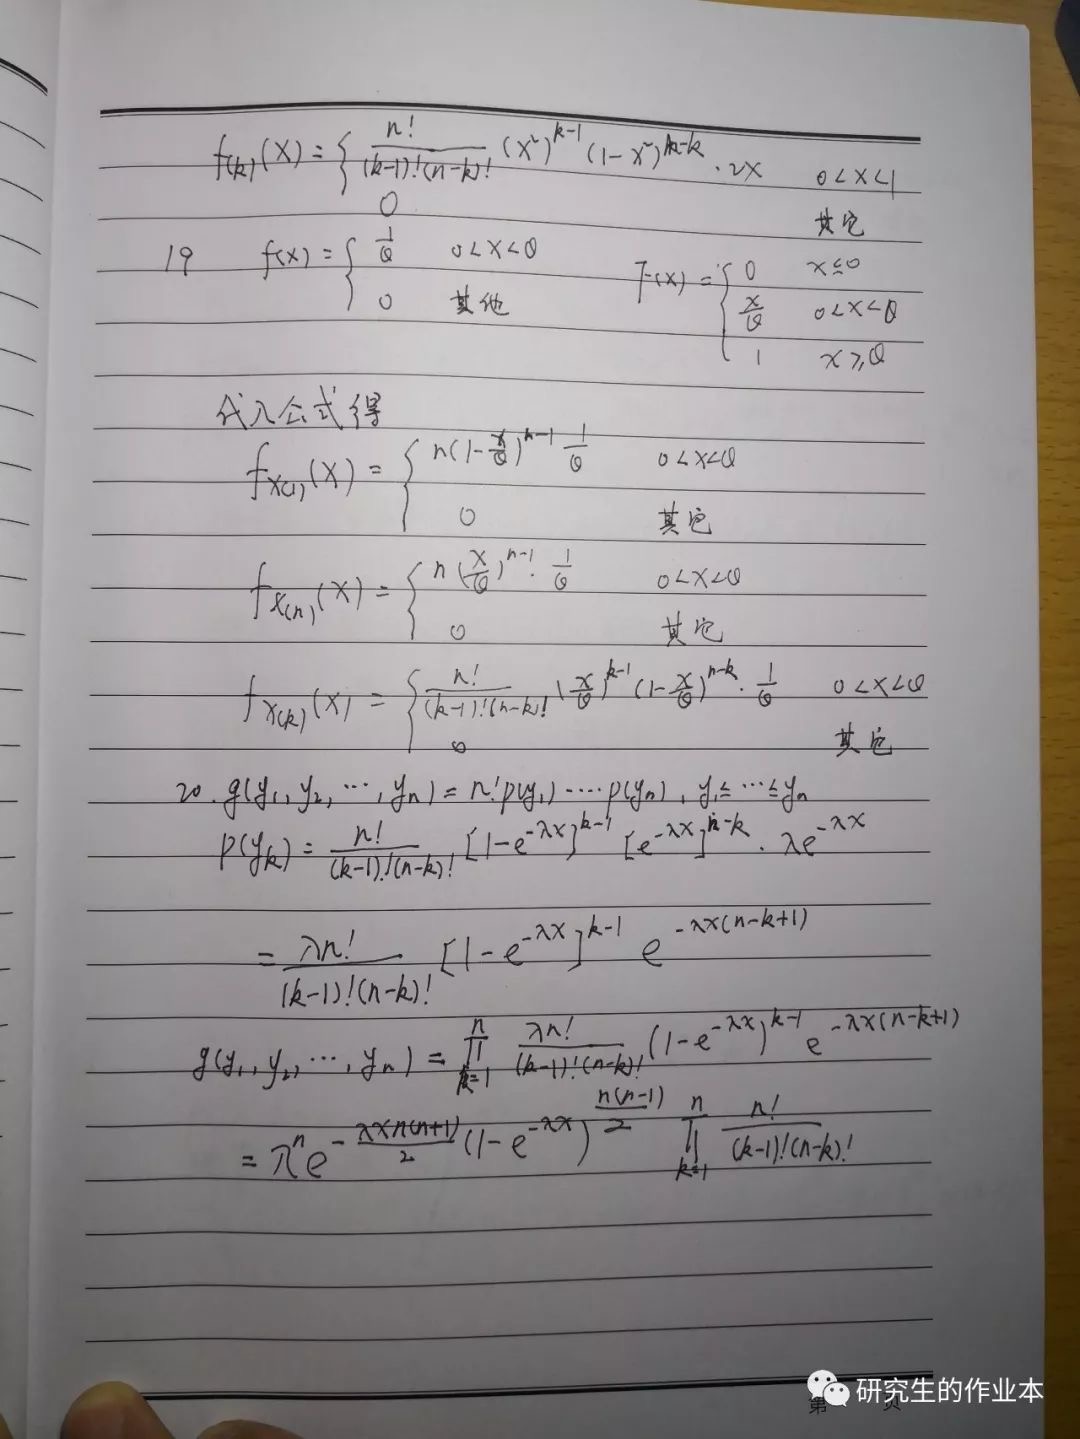 f(k)(x) = { n!/((k-1)!(n-k)!) (x²)^(k-1) (1-x²)^(n-k) · 2x    0<x<1
0    其它
19    f(x) = { 1/θ    0<x<θ    F(x) = { 0    x≤0
0    其他    x/θ    0<x<θ
1    x≥θ
代入公式得
f_X(1)(x) = { n(1-x/θ)^(n-1) 1/θ    0<x<θ
0    其它
f_X(n)(x) = { n(x/θ)^(n-1) · 1/θ    0<x<θ
0    其它
f_X(k)(x) = { n!/((k-1)!(n-k)!) (x/θ)^(k-1) (1-x/θ)^(n-k) · 1/θ    0<x<θ
0    其它
20. g(y₁, y₂, ..., yₙ) = n!p(y₁)·····p(yₙ), y₁≤···≤yₙ
p(y_k) = n!/((k-1)!(n-k)!) [1-e^(-λx)]^(k-1) [e^(-λx)]^(n-k) · λe^(-λx)
= λn!/((k-1)!(n-k)!) [1-e^(-λx)]^(k-1) e^(-λx(n-k+1))
g(y₁, y₂, ..., yₙ) = ∏_(k=1)^n λn!/((k-1)!(n-k)!) (1-e^(-λx))^(k-1) e^(-λx(n-k+1))
= λⁿ e^(-λxn(n+1)/2) (1-e^(-λx))^(n(n-1)/2) ∏_(k=1)^n n!/((k-1)!(n-k)!)
研究生的作业本
第 页